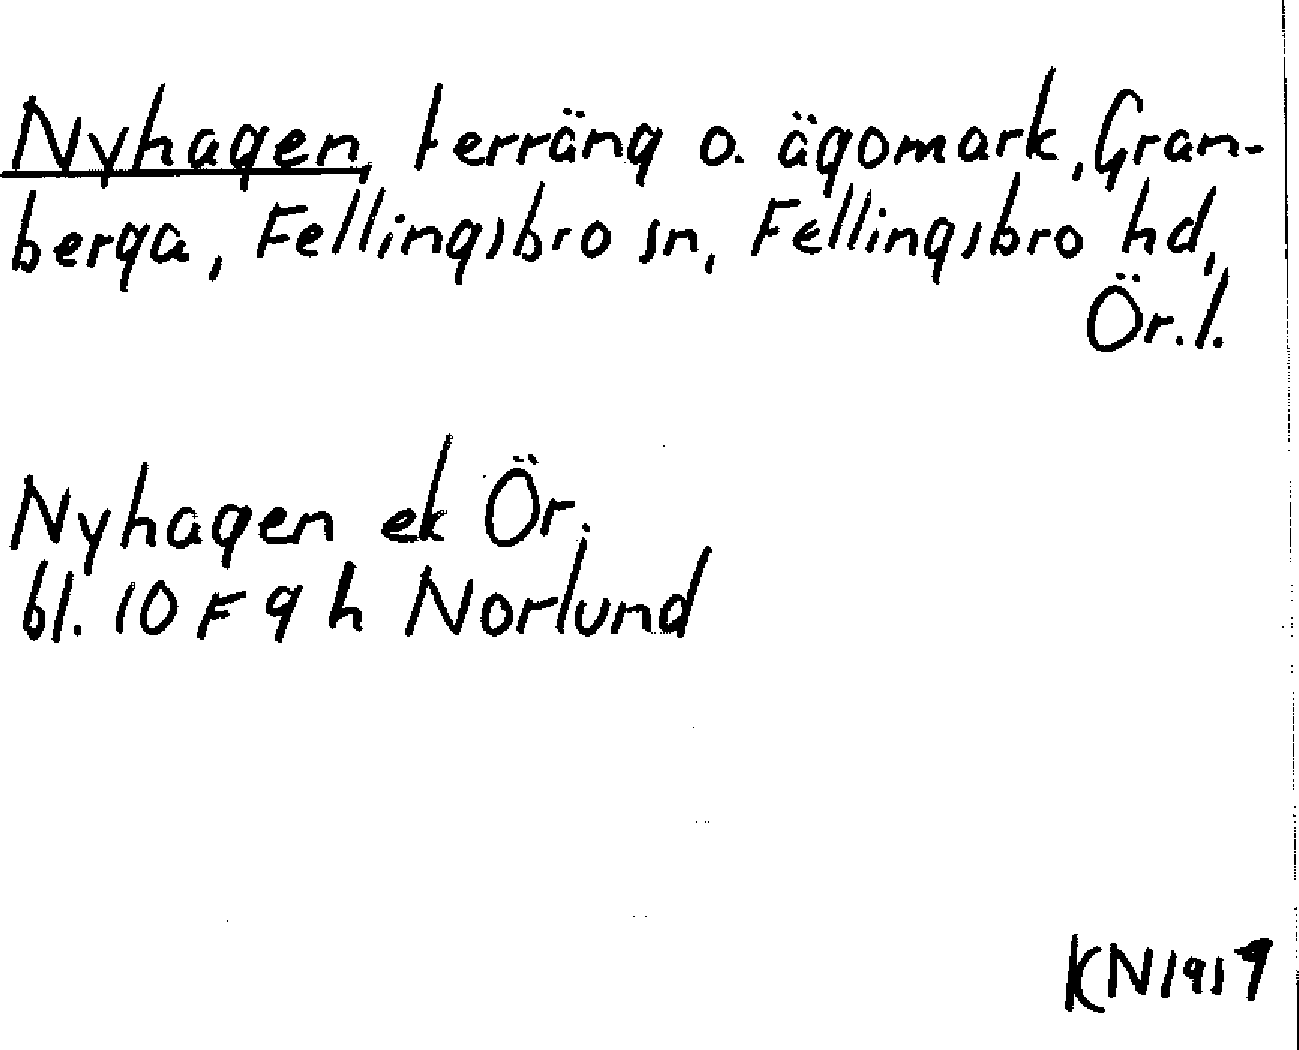 Nyhagen, terräng o. ägomark, Gran-
berga, Fellingsbro sn, Fellingsbro hd,
Ör. l.
Nyhagen ek Ör.
bl. 10 F 9 h Norlund
KN 1917